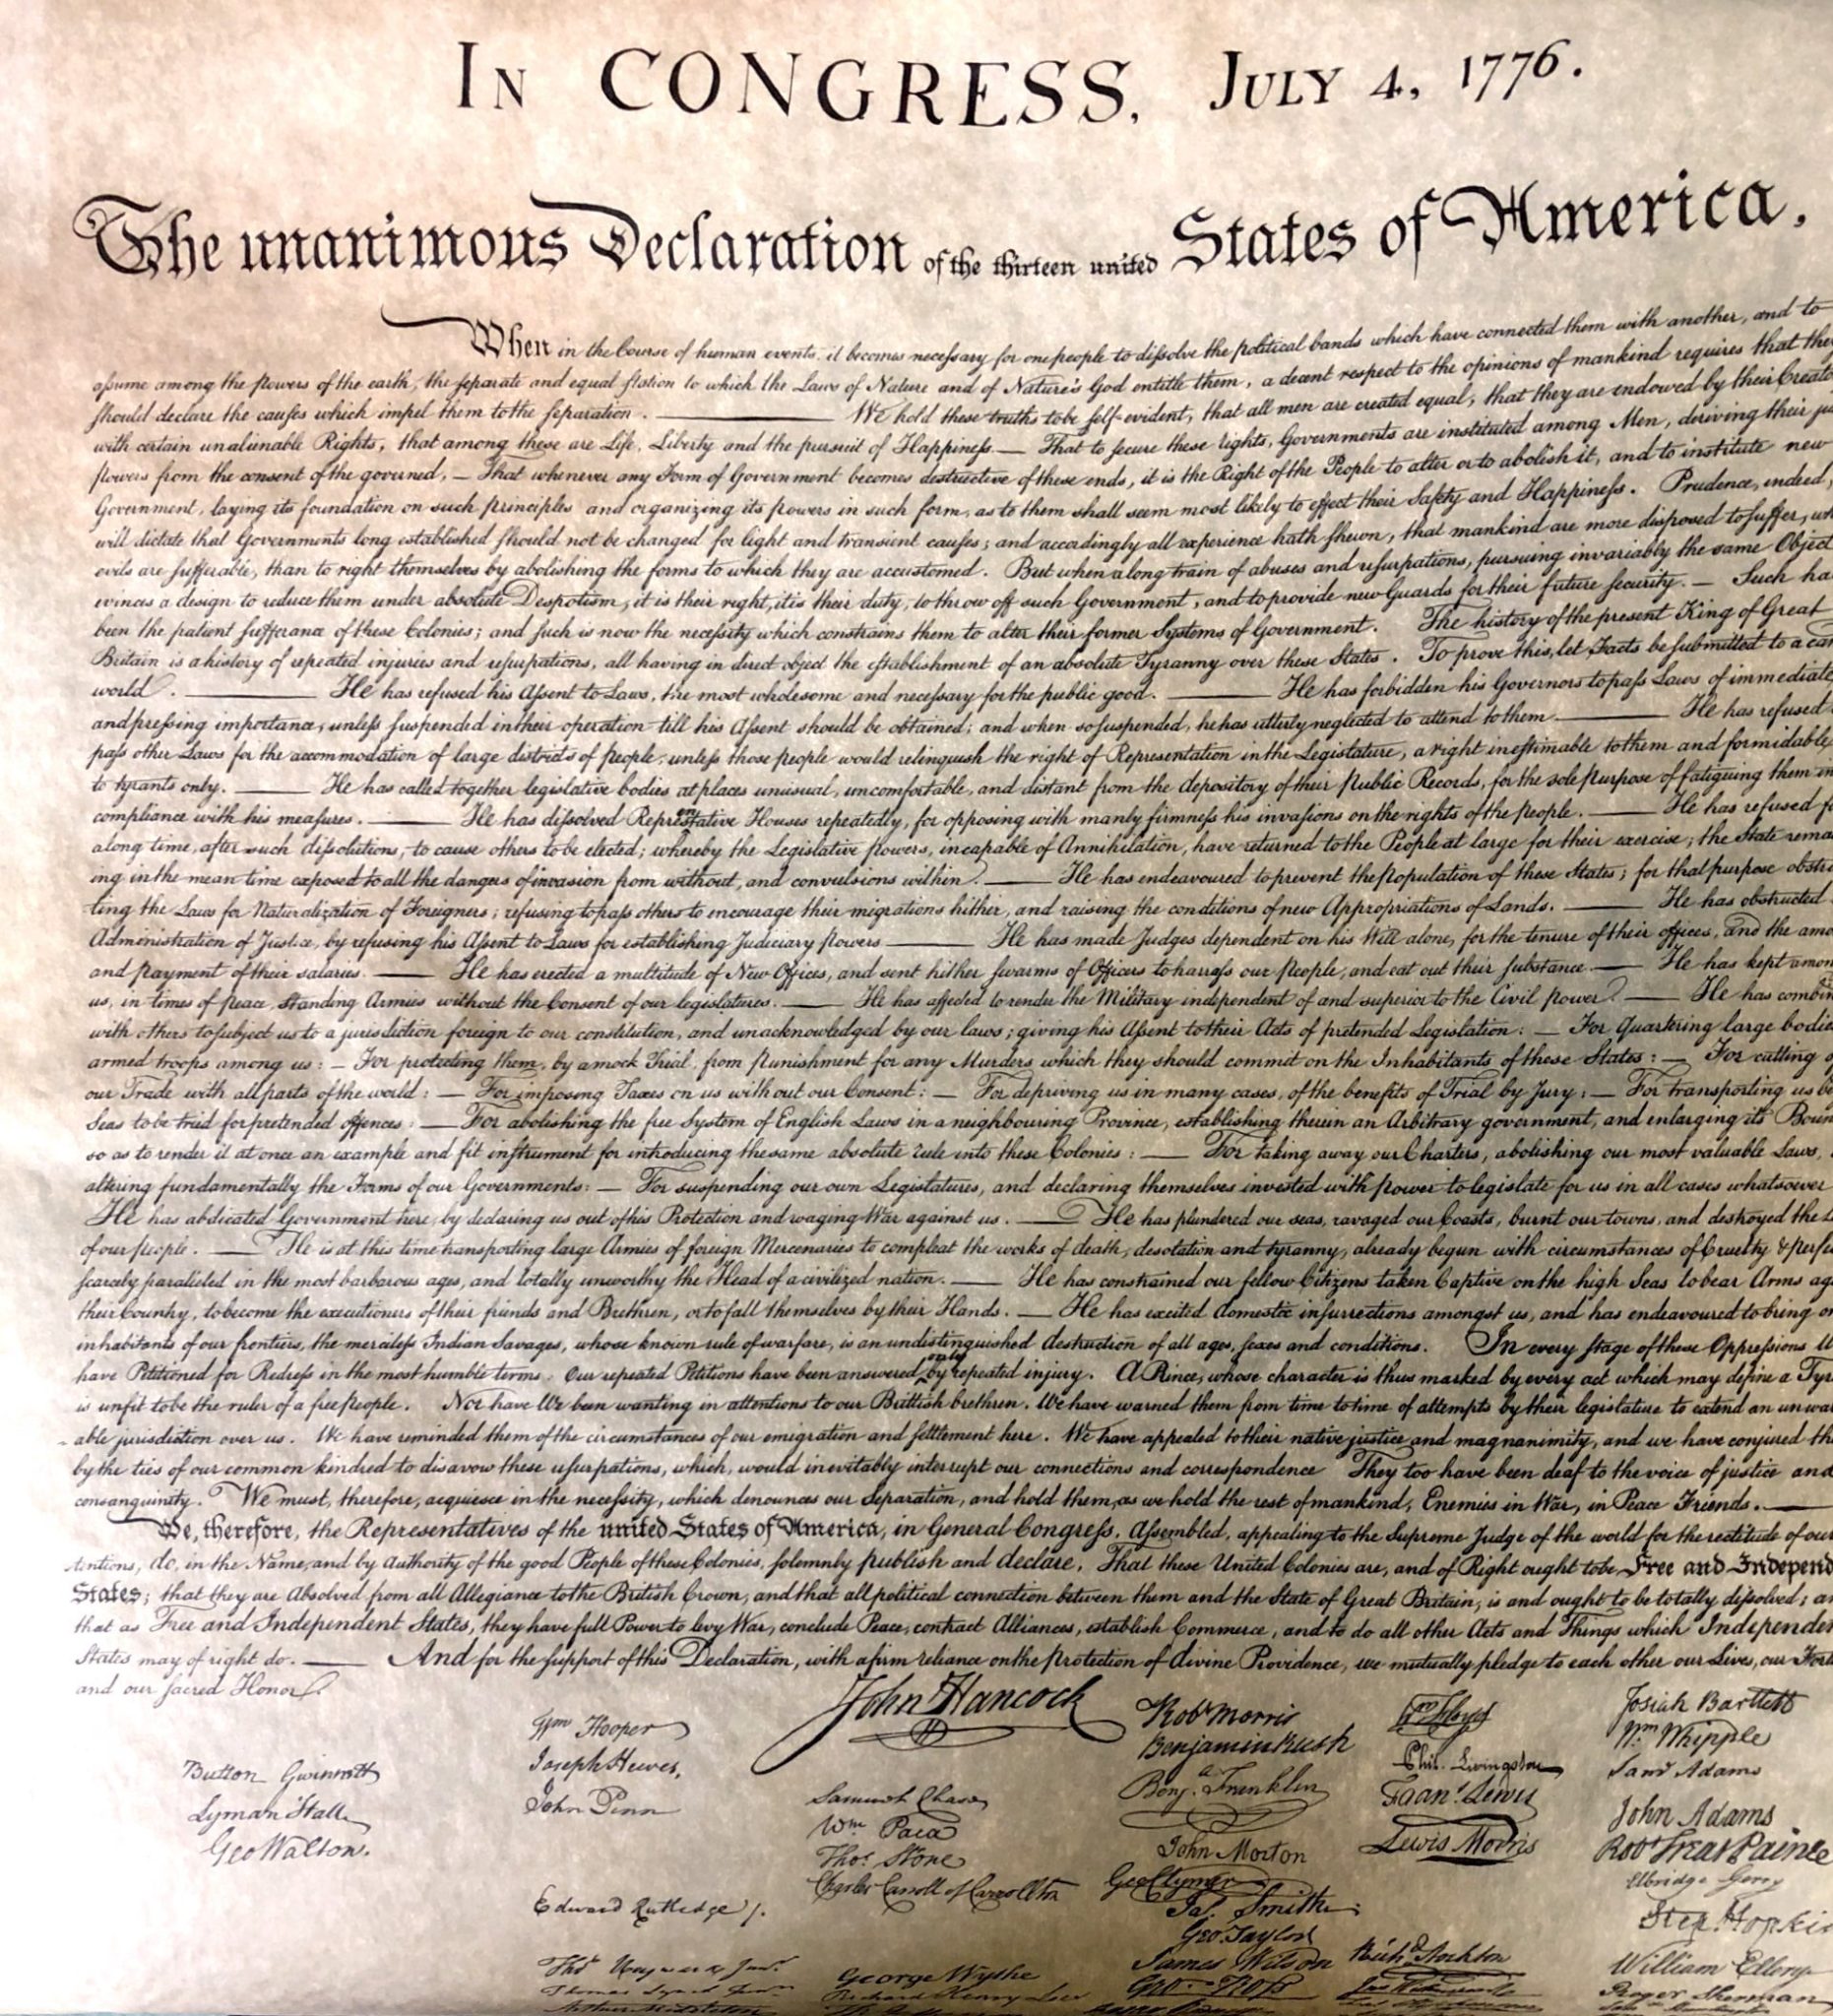 IN CONGRESS, JULY 4, 1776.
The unanimous Declaration of the thirteen united States of America,
When in the Course of human events, it becomes necessary for one people to dissolve the political bands which have connected them with another, and to
assume among the powers of the earth, the separate and equal station to which the Laws of Nature and of Nature's God entitle them, a decent respect to the opinions of mankind requires that they
should declare the causes which impel them to the separation. ——— We hold these truths to be self-evident, that all men are created equal, that they are endowed by their Creato
with certain unalienable Rights, that among these are Life, Liberty and the pursuit of Happiness. — That to secure these rights, Governments are instituted among Men, deriving their ju
powers from the consent of the governed, — That whenever any Form of Government becomes destructive of these ends, it is the Right of the People to alter or to abolish it, and to institute new
Government, laying its foundation on such principles and organizing its powers in such form, as to them shall seem most likely to effect their Safety and Happiness. Prudence, indeed,
will dictate that Governments long established should not be changed for light and transient causes; and accordingly all experience hath shewn, that mankind are more disposed to suffer, wh
evils are sufferable, than to right themselves by abolishing the forms to which they are accustomed. But when a long train of abuses and usurpations, pursuing invariably the same Object
evinces a design to reduce them under absolute Despotism, it is their right, it is their duty, to throw off such Government, and to provide new Guards for their future security. — Such ha
been the patient sufferance of these Colonies; and such is now the necessity which constrains them to alter their former Systems of Government. The history of the present King of Great
Britain is a history of repeated injuries and usurpations, all having in direct object the establishment of an absolute Tyranny over these States. To prove this, let Facts be submitted to a can
world. ——— He has refused his Assent to Laws, the most wholesome and necessary for the public good. ——— He has forbidden his Governors to pass Laws of immediate
and pressing importance, unless suspended in their operation till his Assent should be obtained; and when so suspended, he has utterly neglected to attend to them. ——— He has refused
pass other Laws for the accommodation of large districts of people, unless those people would relinquish the right of Representation in the Legislature, a right inestimable to them and formidable
to tyrants only. ——— He has called together legislative bodies at places unusual, uncomfortable, and distant from the depository of their Public Records, for the sole purpose of fatiguing them in
compliance with his measures. ——— He has dissolved Representative Houses repeatedly, for opposing with manly firmness his invasions on the rights of the people. ——— He has refused f
a long time, after such dissolutions, to cause others to be elected; whereby the Legislative powers, incapable of Annihilation, have returned to the People at large for their exercise; the State rema
ing in the mean time exposed to all the dangers of invasion from without, and convulsions within. ——— He has endeavoured to prevent the population of these States; for that purpose obstr
ting the Laws for Naturalization of Foreigners; refusing to pass others to encourage their migrations hither, and raising the conditions of new Appropriations of Lands. ——— He has obstructed
Administration of Justice, by refusing his Assent to Laws for establishing Judiciary powers ——— He has made Judges dependent on his Will alone, for the tenure of their offices, and the amo
and payment of their salaries. ——— He has erected a multitude of New Offices, and sent hither swarms of Officers to harrass our people, and eat out their substance. — He has kept amon
us, in times of peace, Standing Armies without the Consent of our legislatures. ——— He has affected to render the Military independent of and superior to the Civil power. — He has combin
with others to subject us to a jurisdiction foreign to our constitution, and unacknowledged by our laws; giving his Assent to their Acts of pretended Legislation: — For Quartering large bodie
armed troops among us: — For protecting them, by a mock Trial, from punishment for any Murders which they should commit on the Inhabitants of these States: — For cutting o
our Trade with all parts of the world: — For imposing Taxes on us without our Consent: — For depriving us in many cases, of the benefits of Trial by Jury: — For transporting us be
Seas to be tried for pretended offences: — For abolishing the free System of English Laws in a neighbouring Province, establishing therein an Arbitrary government, and enlarging its Boun
so as to render it at once an example and fit instrument for introducing the same absolute rule into these Colonies: — For taking away our Charters, abolishing our most valuable Laws,
altering fundamentally the Forms of our Governments: — For suspending our own Legislatures, and declaring themselves invested with power to legislate for us in all cases whatsoever
He has abdicated Government here, by declaring us out of his Protection and waging War against us. ——— He has plundered our seas, ravaged our Coasts, burnt our towns, and destroyed the L
of our people. ——— He is at this time transporting large Armies of foreign Mercenaries to compleat the works of death, desolation and tyranny, already begun with circumstances of Cruelty & perfi
scarcely paralleled in the most barbarous ages, and totally unworthy the Head of a civilized nation. ——— He has constrained our fellow Citizens taken Captive on the high Seas to bear Arms aga
their Country, to become the executioners of their friends and Brethren, or to fall themselves by their Hands. — He has excited domestic insurrections amongst us, and has endeavoured to bring on
inhabitants of our frontiers, the merciless Indian Savages, whose known rule of warfare, is an undistinguished destruction of all ages, sexes and conditions. In every stage of these Oppressions W
have Petitioned for Redress in the most humble terms: Our repeated Petitions have been answered only by repeated injury. A Prince, whose character is thus marked by every act which may define a Tyr
is unfit to be the ruler of a free people. Nor have We been wanting in attentions to our Brittish brethren. We have warned them from time to time of attempts by their legislature to extend an unwar
-able jurisdiction over us. We have reminded them of the circumstances of our emigration and settlement here. We have appealed to their native justice and magnanimity, and we have conjured th
by the ties of our common kindred to disavow these usurpations, which, would inevitably interrupt our connections and correspondence They too have been deaf to the voice of justice and
consanguinity. We must, therefore, acquiesce in the necessity, which denounces our Separation, and hold them, as we hold the rest of mankind, Enemies in War, in Peace Friends. ———
We, therefore, the Representatives of the united States of America, in General Congress, Assembled, appealing to the Supreme Judge of the world for the rectitude of our
tentions, do, in the Name, and by Authority of the good People of these Colonies, solemnly publish and declare, That these United Colonies are, and of Right ought to be Free and Independ
States; that they are Absolved from all Allegiance to the British Crown, and that all political connection between them and the State of Great Britain, is and ought to be totally dissolved; an
that as Free and Independent States, they have full Power to levy War, conclude Peace, contract Alliances, establish Commerce, and to do all other Acts and Things which Independen
States may of right do. ——— And for the support of this Declaration, with a firm reliance on the protection of divine Providence, we mutually pledge to each other our Lives, our Fort
and our sacred Honor.
Button Gwinnett
Lyman Hall
Geo Walton.
Wm Hooper
Joseph Hewes,
John Penn
Edward Rutledge /.
Thos Heyward Junr.
Thomas Lynch Junr.
Arthur Middleton
John Hancock
Samuel Chase
Wm Paca
Thos. Stone
Charles Carroll of Carrollton
George Wythe
Richard Henry Lee
Robt Morris
Benjamin Rush
Benj. Franklin
John Morton
Geo Clymer
Jas. Smith
Geo. Taylor
James Wilson
Geo. Ross
Wm Floyd
Phil. Livingston
Frans. Lewis
Lewis Morris
Richd. Stockton
Josiah Bartlett
Wm Whipple
Saml Adams
John Adams
Robt Treat Paine
Elbridge Gerry
Step. Hopkin
William Ellery
Roger Sherman